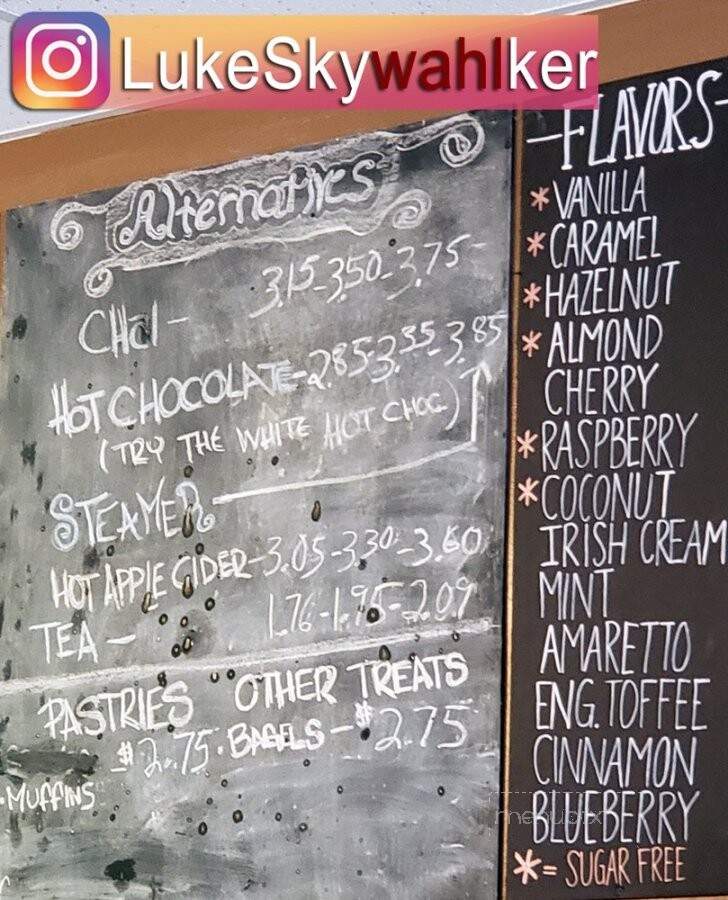 LukeSkywahlker
Alternatives
CHai - 3.15-3.50-3.75-
HOT CHOCOLATE-2.85-3.35-3.85
(TRY THE WHITE HOT CHOC.)
STEAMER
HOT APPLE CIDER-3.05-3.30-3.60
TEA - 1.76-1.95-2.09
PASTRIES OTHER TREATS
$2.75 · BAGELS - $2.75
·MUFFINS
-FLAVORS-
*VANILLA
*CARAMEL
*HAZELNUT
*ALMOND
CHERRY
*RASPBERRY
*COCONUT
IRISH CREAM
MINT
AMARETTO
ENG. TOFFEE
CINNAMON
BLUEBERRY
*= SUGAR FREE
menupix